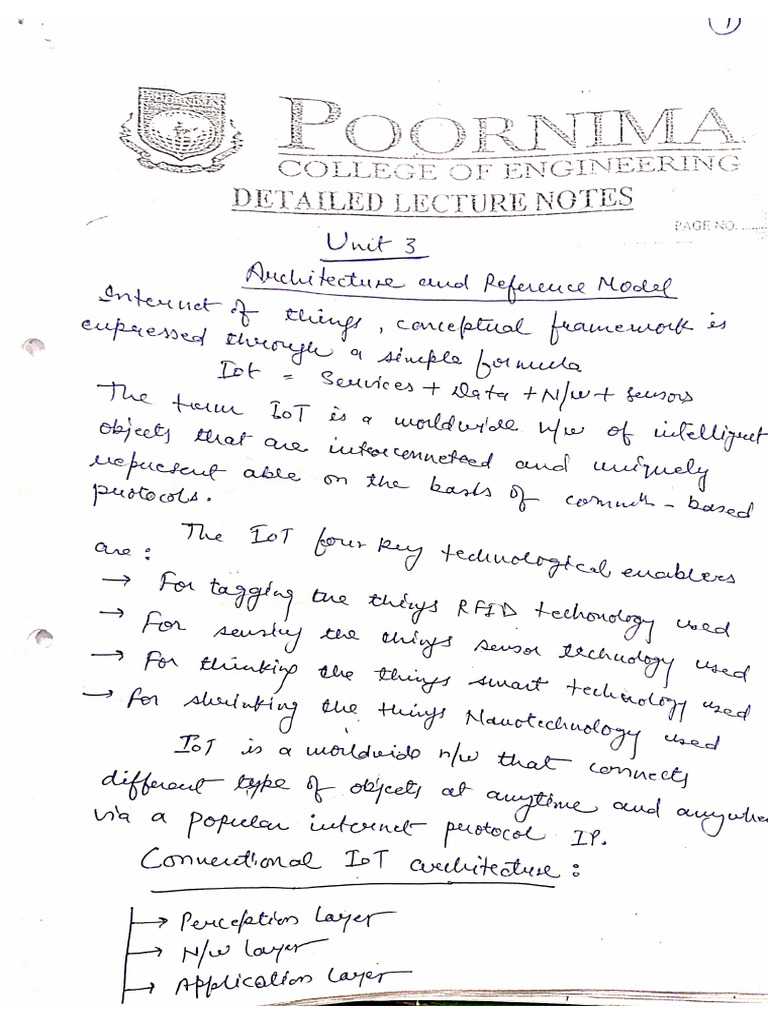 1
POORNIMA
POORNIMA
COLLEGE OF ENGINEERING
DETAILED LECTURE NOTES
PAGE NO. ........
Unit 3
Architecture and Reference Model
Internet of things, conceptual framework is
expressed through a simple formula
IoT = Services + Data + N/w + Sensors
The term IoT is a worldwide n/w of intelligent
objects that are interconneteed and uniquely
represent able on the basis of commn - based
protocols.
The IoT four key technological enablers
are :
→ For tagging the things RFID techonology used
→ For sensing the things sensor technology used
→ For thinking the things smart technology used
→ For shrinking the things Nanotechnology used
IoT is a worldwide n/w that connects
different type of objects at anytime and anywhe
via a popular internet protocol IP.
Conventional IoT architecture :
→ Perception Layer
→ N/w layer
→ Application Layer